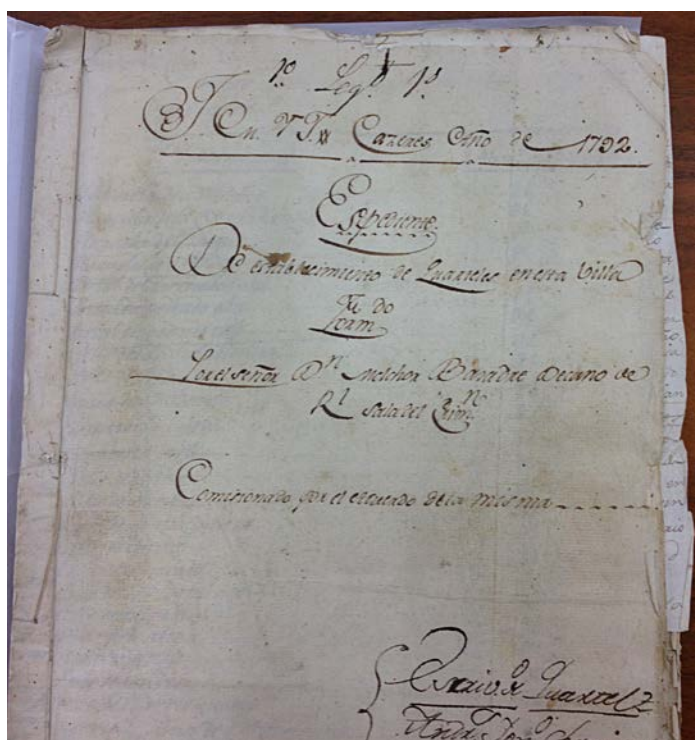 1º Legº 1º
Cazeres Año de 1792.
Expediente.
De establecimiento de Quarteles en esta Villa
Formdo
Por el Señor Dn Melchor Basadre Decano de
Rl Sala del Crimn
Comisionado por el acuerdo de la misma
Quartel 2